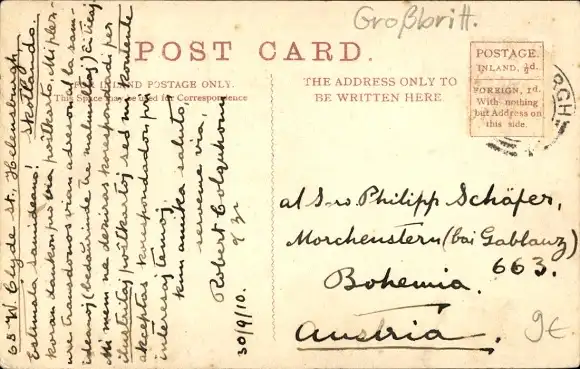 Großbritt.
POST CARD.
INLAND POSTAGE ONLY.
This Space may be used for Correspondence
THE ADDRESS ONLY TO
BE WRITTEN HERE.
POSTAGE.
INLAND, ½d.
FOREIGN, 1d.
With nothing
but Address on
this side.
RGH
65 W. Clyde St., Helensburgh,
Skotlando.
Estimata samideano!
Koran dankon pro via poŝtkarto. Mi plezure
transdonos vian adreson al la samideanoj
(bedaŭrinde tre malmultaj) ĉi tieaj.
Mi mem ne deziras korespondadi per
ilustritaj poŝtkartoj sed mi konsente
akceptas korespondadon pri
interesaj temoj.
Kun amika saluto,
serveme via,
Robert Colquhoun
30/9/10.
al S-ro Philipp Schäfer,
Morchenstern (bai Gablauz)
663.
Bohemia.
Austria.
9€